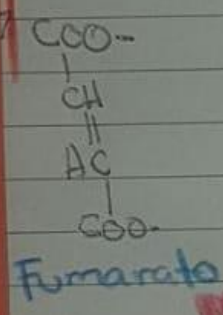 COO-
CH
HC
COO-
Fumarato